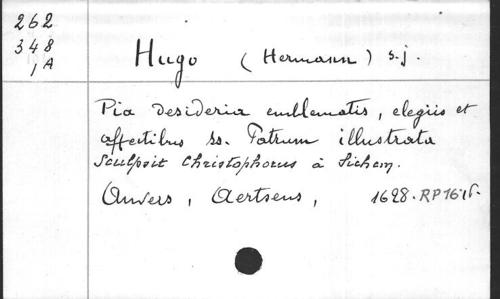 262
348
1 A
Hugo (Hermann) s.j.
Pia Desideria emblematis, elegiis et
affectibus ss. Patrum illustrata
Sculpsit Christophorus à Sichem.
Anvers, Aertsens, 1628. RP16